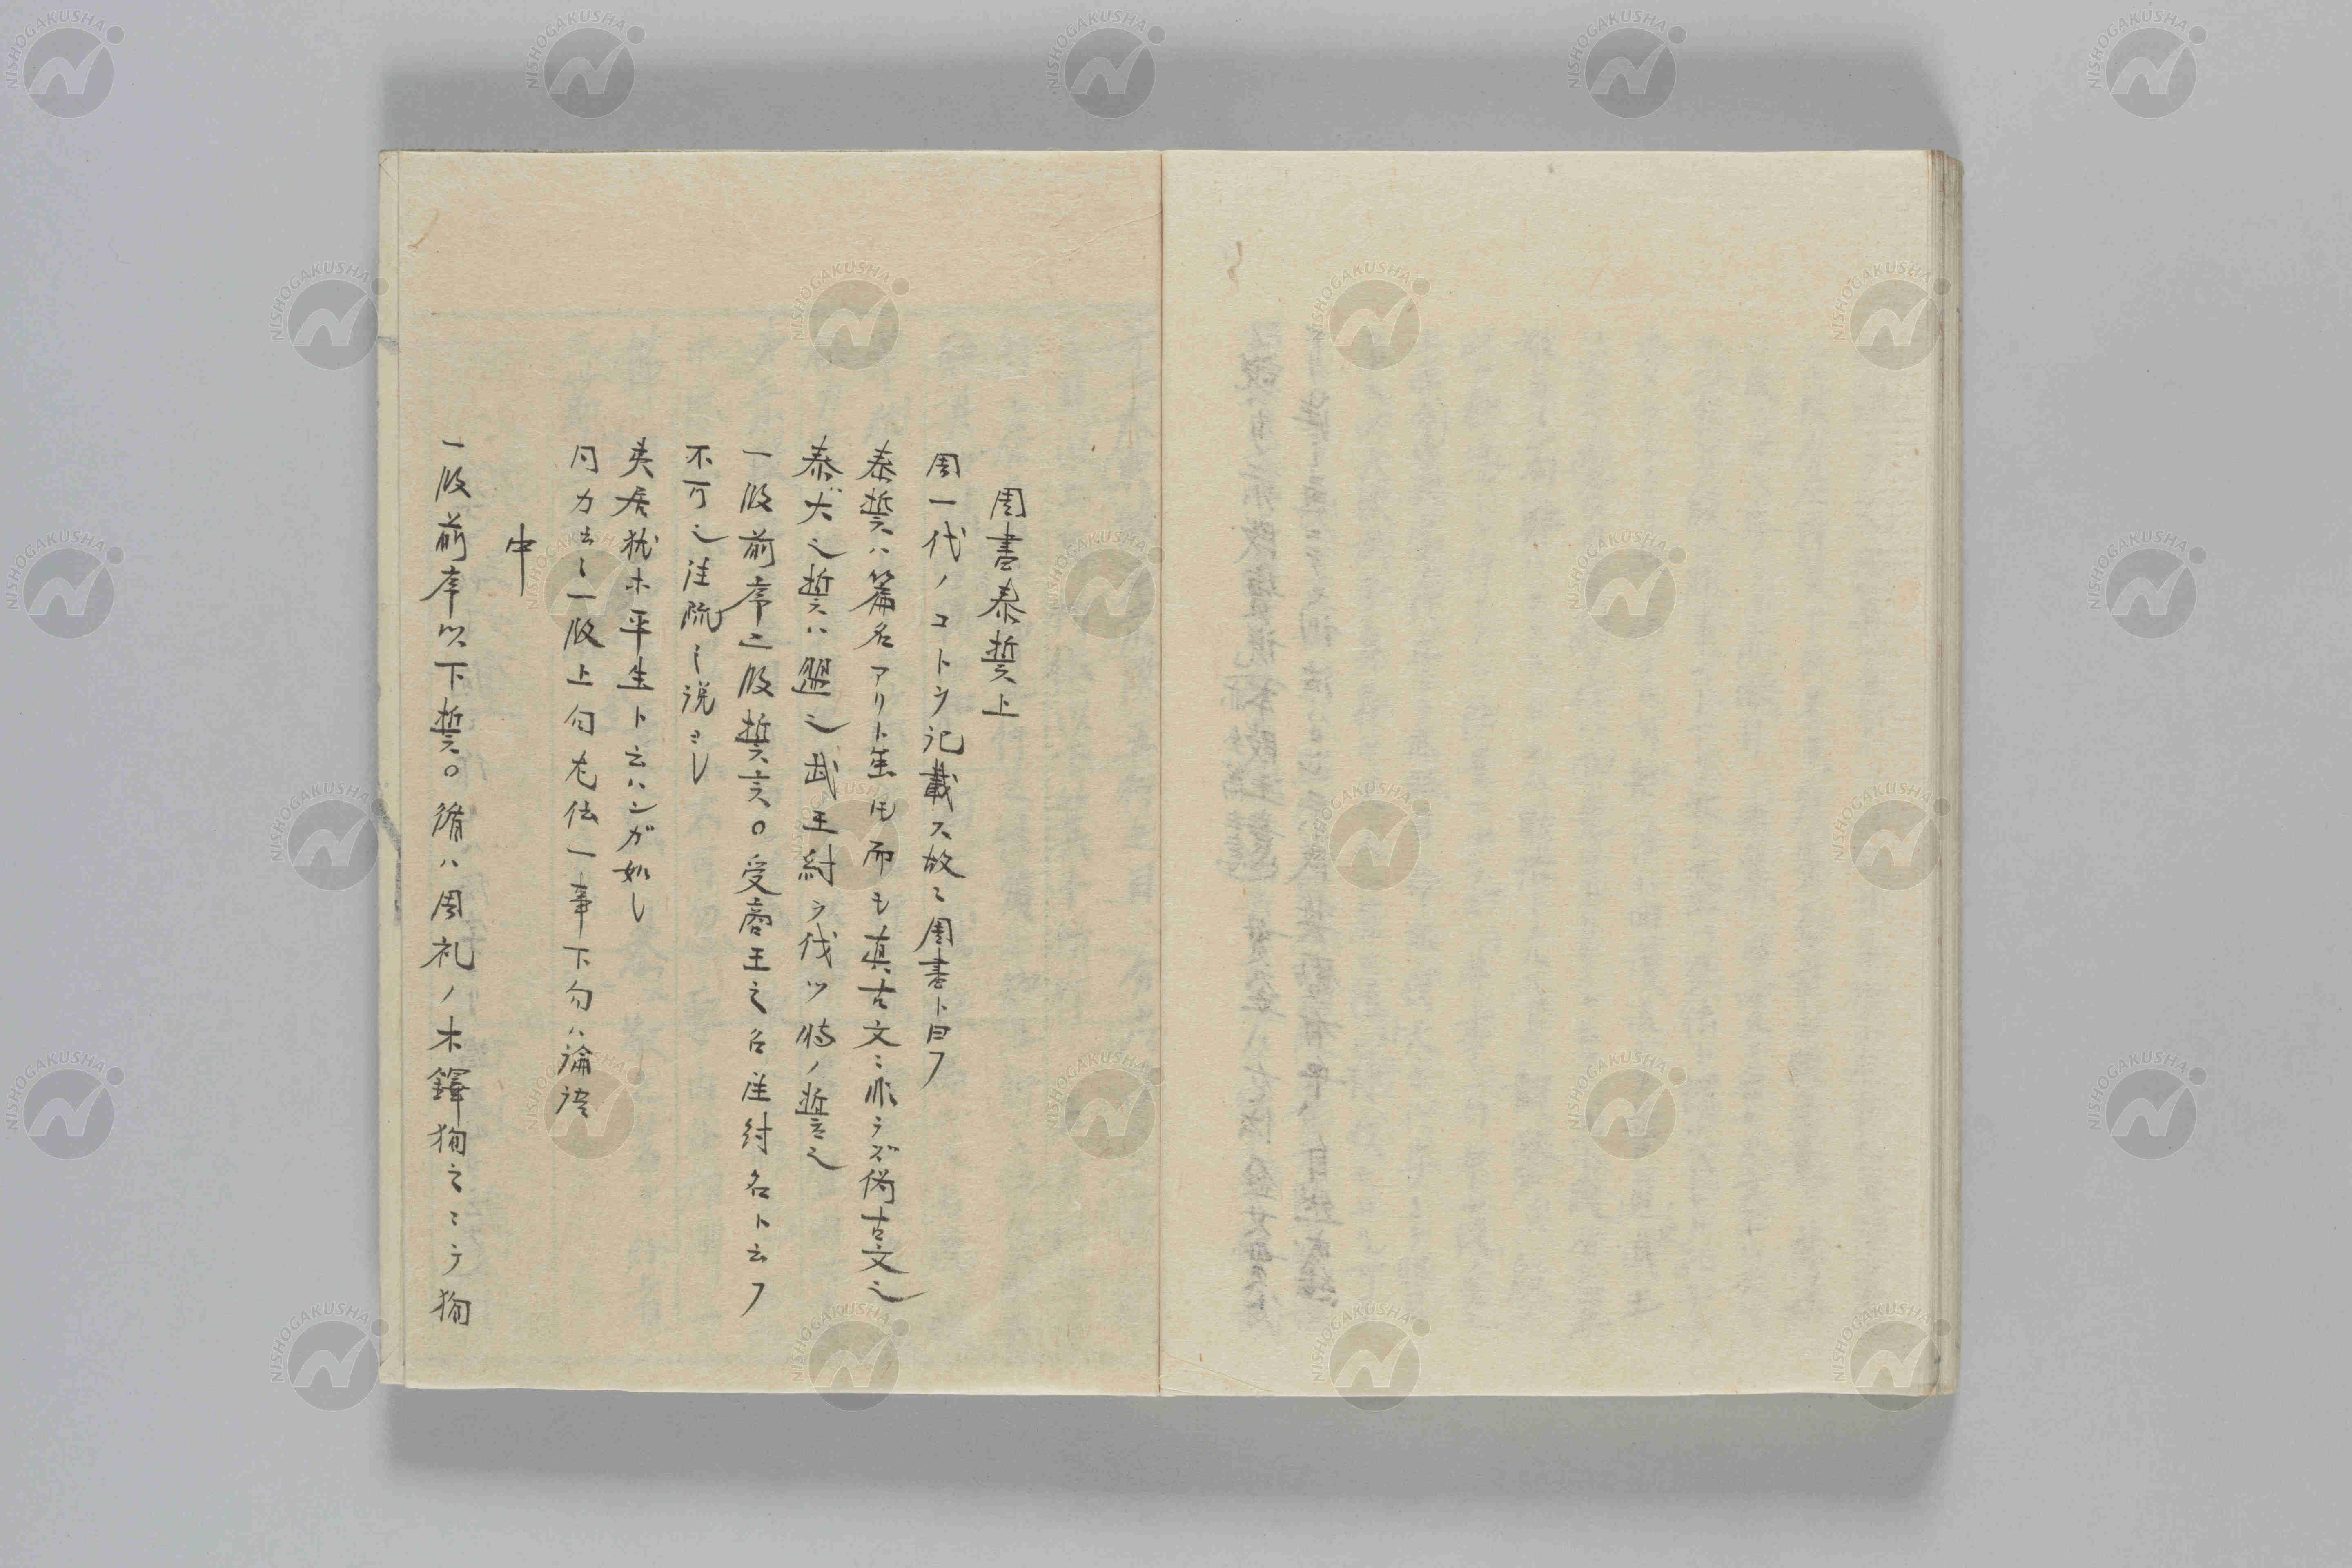 周書泰誓上
周一代ノコトヲ記載ス故ニ周書ト曰フ
泰誓ハ篇名アリト虽𪜈而モ真古文ニ非ラズ偽古文之
泰大之誓ハ盟之武王紂ヲ伐ツ時ノ誓之
一段前序二段誓言○受商王之名注紂名ト云フ
不可之注疏ノ説ヨシ
夷居猶ホ平生ト云ハンガ如し
同力云々一段上句左伝一事下句ハ論語
中
一段前序以下誓○循ハ周礼ノ木鐸徇之ニテ徇
NISHOGAKUSHA